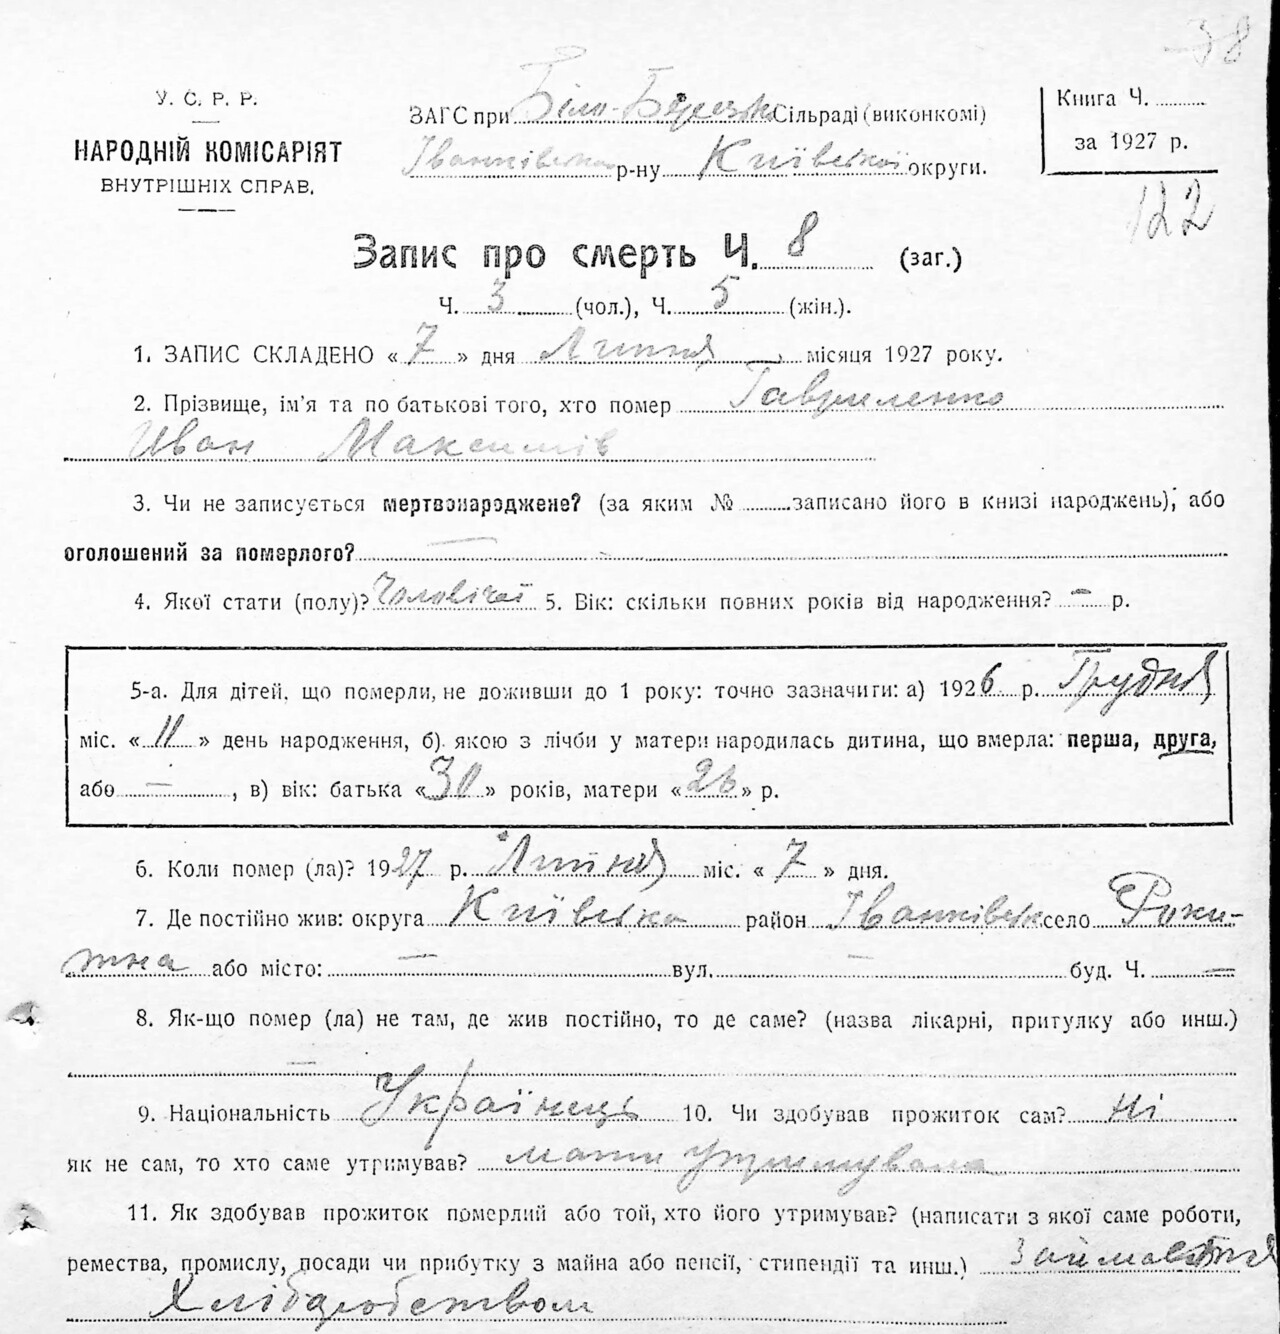 38
У. С. Р. Р.
НАРОДНІЙ КОМІСАРІЯТ
ВНУТРІШНІХ СПРАВ.
ЗАГС при Біло-Березька Сільраді (виконкомі)
Іванківська р-ну Київської округи.
Книга Ч.
за 1927 р.
122
Запис про смерть Ч. 8 (заг.)
Ч. 3 (чол.), Ч. 5 (жін.).
1. ЗАПИС СКЛАДЕНО « 7 » дня Липня місяця 1927 року.
2. Прізвище, ім’я та по батькові того, хто помер Гавриленко
Иван Максимів
3. Чи не записується мертвонароджене? (за яким № записано його в книзі народжень), або
оголошений за померлого? —
4. Якої стати (полу)? Чоловічої 5. Вік: скільки повних років від народження? — р.
5-а. Для дітей, що померли, не доживши до 1 року: точно зазначити: а) 1926 р. Грудня
міс. « 11 » день народження, б) якою з лічби у матери народилась дитина, що вмерла: перша, друга,
або — , в) вік: батька « 30 » років, матери « 26 » р.
6. Коли помер (ла)? 1927 р. Липня міс. « 7 » дня.
7. Де постійно жив: округа Київська район Іванківськ село Роки-
тна або місто: — вул. — буд. Ч. —
8. Як-що помер (ла) не там, де жив постійно, то де саме? (назва лікарні, притулку або инш.)
—
9. Національність Українець 10. Чи здобував прожиток сам? Ні
як не сам, то хто саме утримував? мати утримувала
11. Як здобував прожиток померлий або той, хто його утримував? (написати з якої саме роботи,
ремества, промислу, посади чи прибутку з майна або пенсії, стипендії та инш.)
Хліборобством